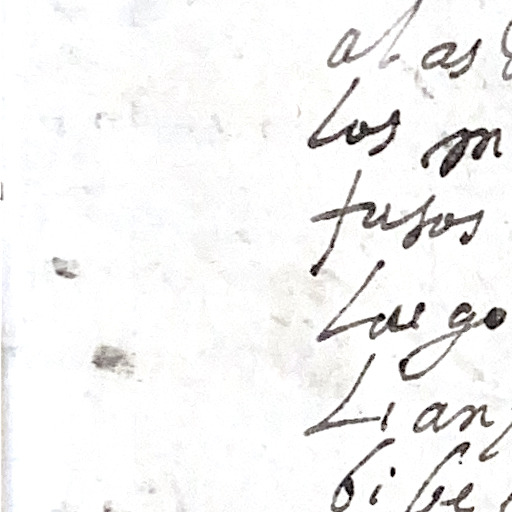 alas
los m
fusos
luego
Lian
bibe